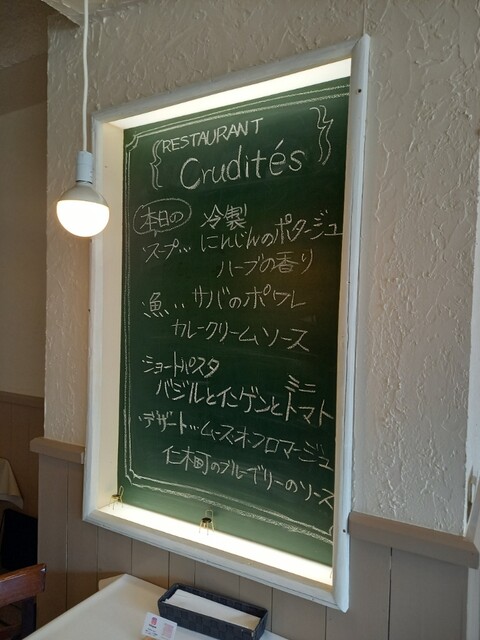 RESTAURANT
Crudités
本日の 冷製
スープ… にんじんのポタージュ
ハーブの香り
魚… サバのポワレ
カレークリームソース
ショートパスタ
ミニ
バジルとインゲンとトマト
デザート… ムース・オ・フロマージュ
仁木町のブルーベリーのソース